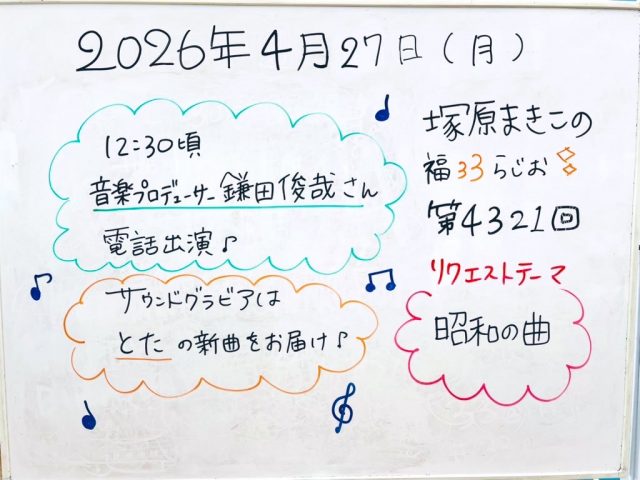 2026年4月27日(月)
12:30頃
音楽プロデューサー鎌田俊哉さん
電話出演♪
サウンドグラビアは
とたの新曲をお届け♪
塚原まきこの
福33らじお
第4321回
リクエストテーマ
昭和の曲